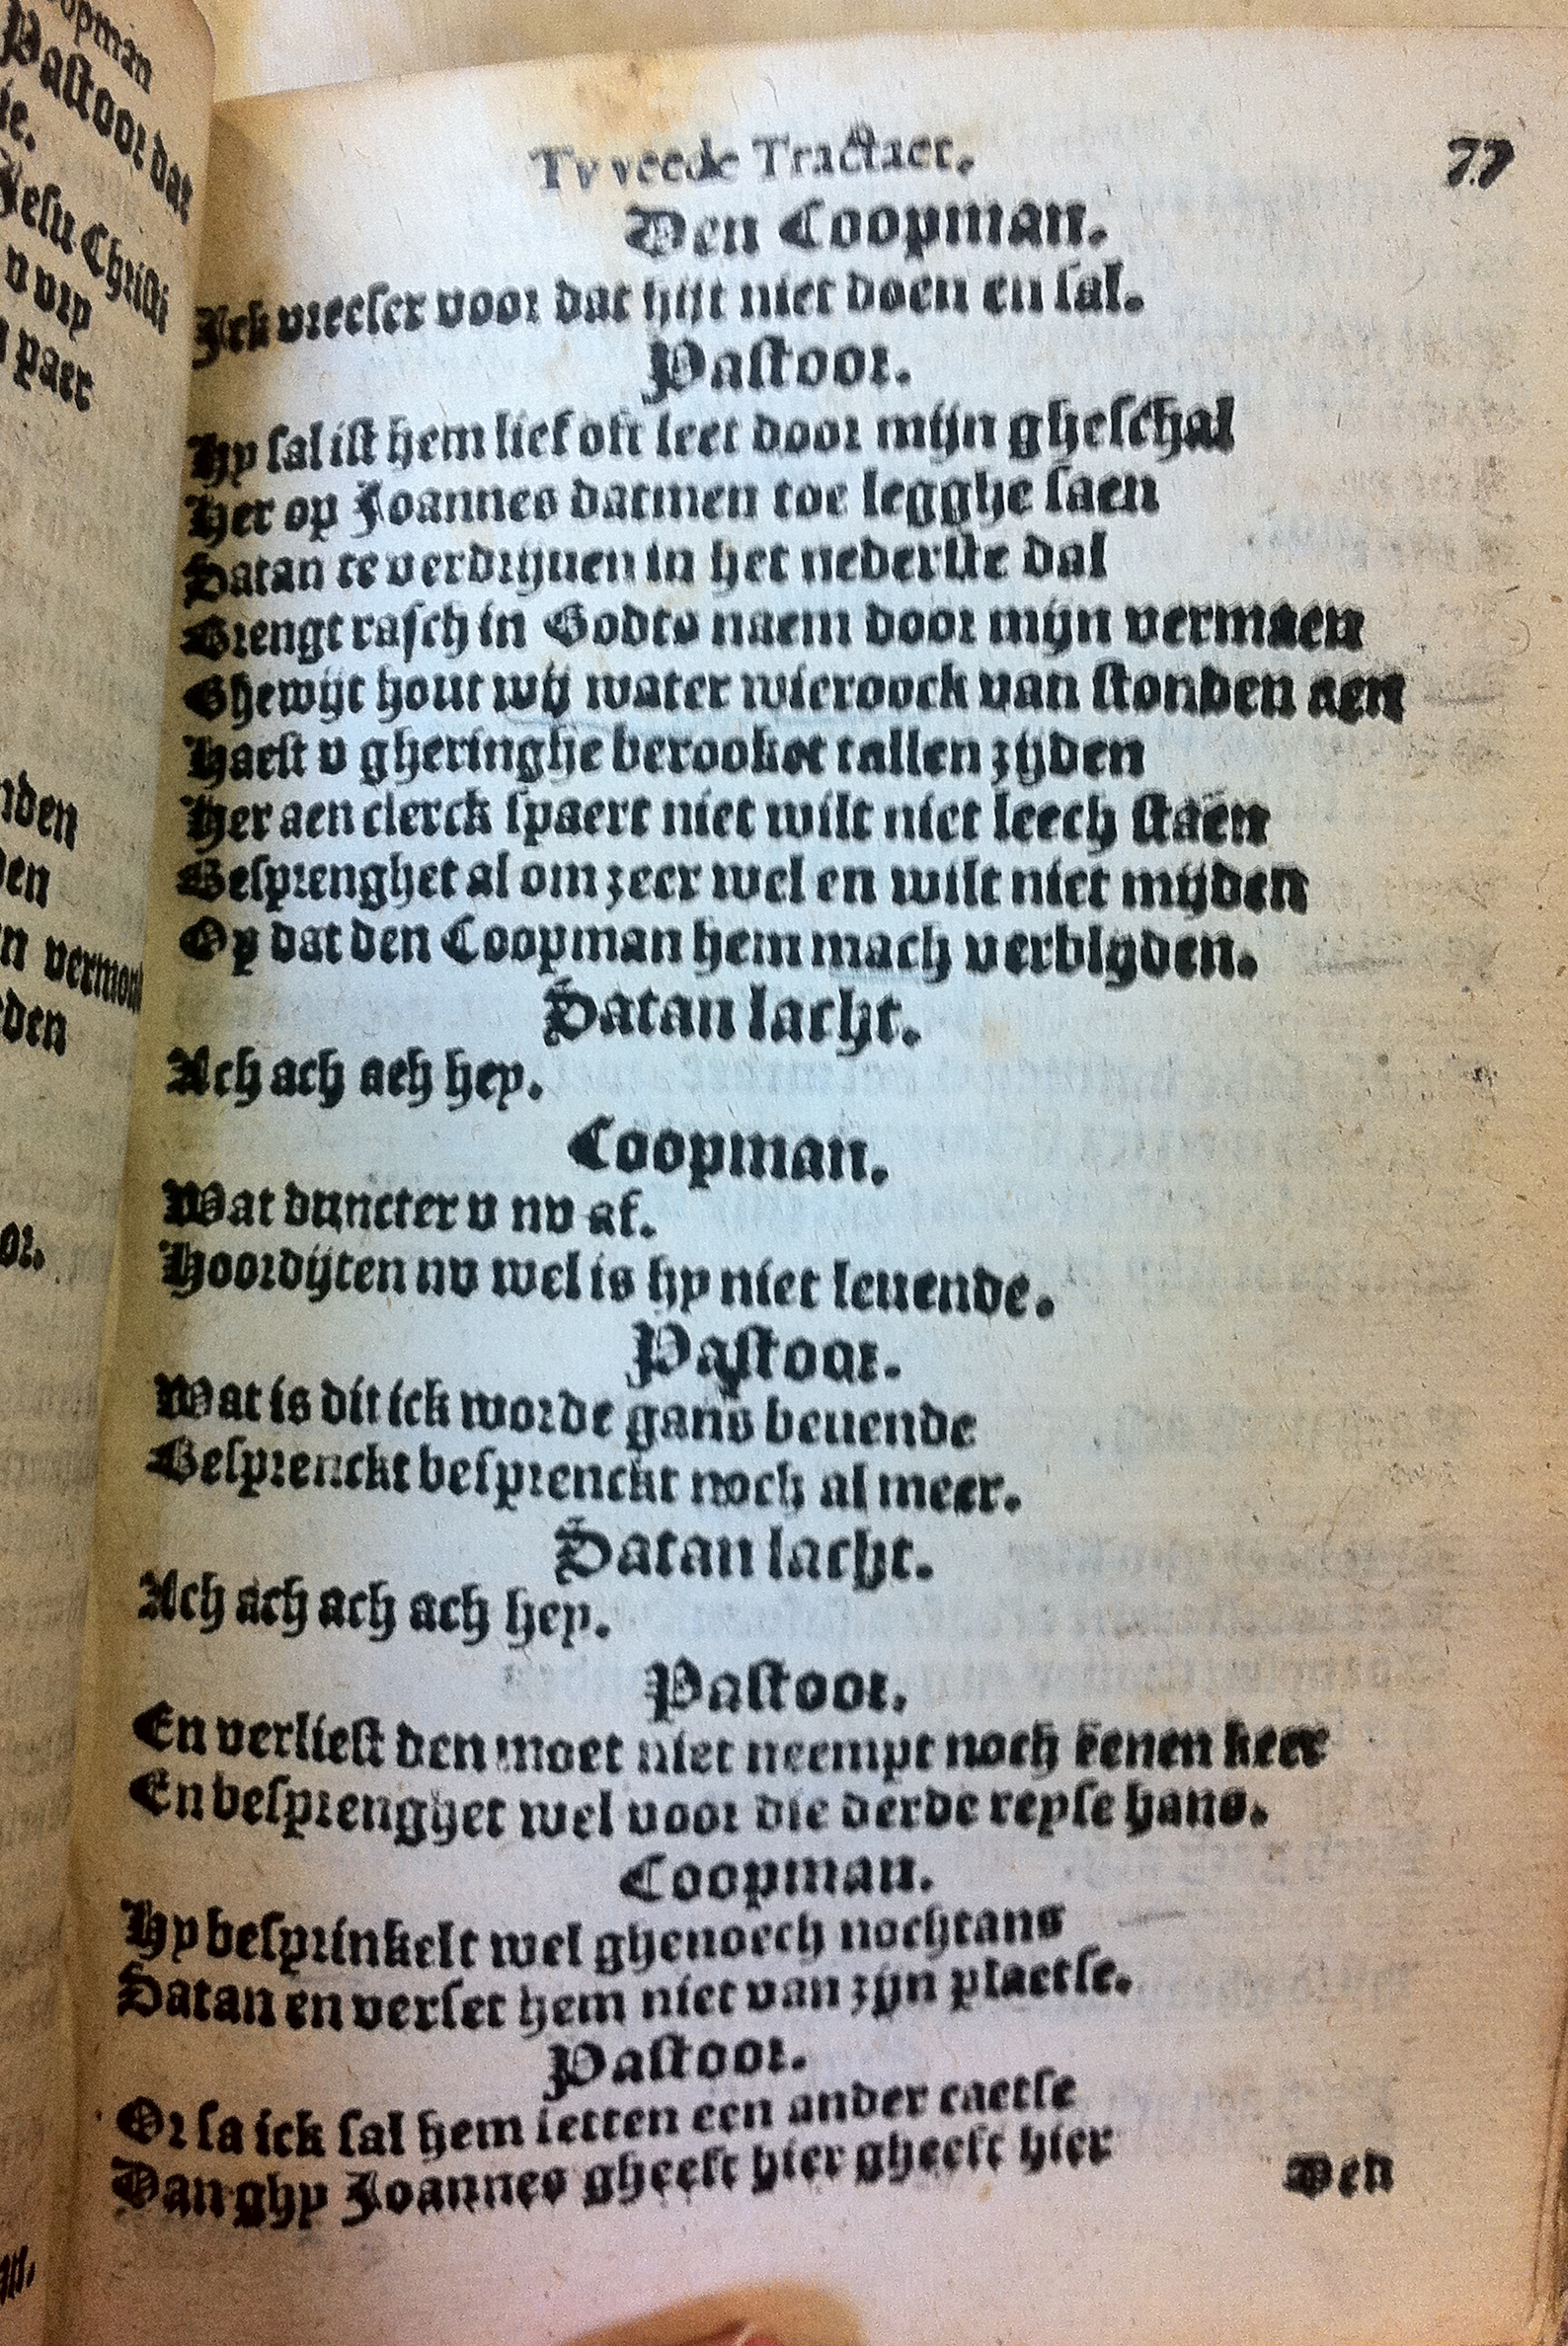 oopman
Pastoor dat
ie.
Jesu Christi
v vry
paer
nden
den
n vermon
den
or.
Tvveede Tractaet. 77
Den Coopman.
Ick vreeset voor dat hijt niet doen en sal.
Pastoor.
Hy sal ist hem lief oft leet door mijn gheschal
Her op Joannes datmen toe legghe saen
Satan te verdrijuen in het nederste dal
Brengt rasch in Godts naem door mijn vermaen
Ghewijt hout wij water wieroock van stonden aen
Haest v gheringhe berooket tallen zijden
Her aen clerck spaert niet wilt niet leech staen
Besprenghet al om zeer wel en wilt niet mijden
Op dat den Coopman hem mach verblyden.
Satan lacht.
Ach ach ach hey.
Coopman.
Wat duncter v nv af.
Hoordijten nv wel is hy niet leuende.
Pastoor.
Wat is dit ick worde gans beuende
Besprenckt besprenckt noch al meer.
Satan lacht.
Ach ach ach ach hey.
Pastoor.
En verliest den moet niet neempt noch eenen keer
En besprenghet wel voor die derde reyse hans.
Coopman.
Hy besprinkelt wel ghenoech nochtans
Satan en verset hem niet van zijn plaetse.
Pastoor.
Or sa ick sal hem setten een ander caetse
Dan ghy Joannes gheeft hier gheeft hier
Den